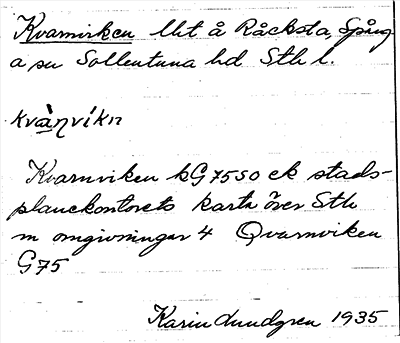 Kvarnviken lht å Råcksta, Spång
a sn Sollentuna hd Sth l.
kvà̱ŋvíkn
Kvarnviken bG75SO ek stads-
planekontorets karta över Sth
m omgivningar 4 Qvarnviken
G75
Karin Lundgren 1935